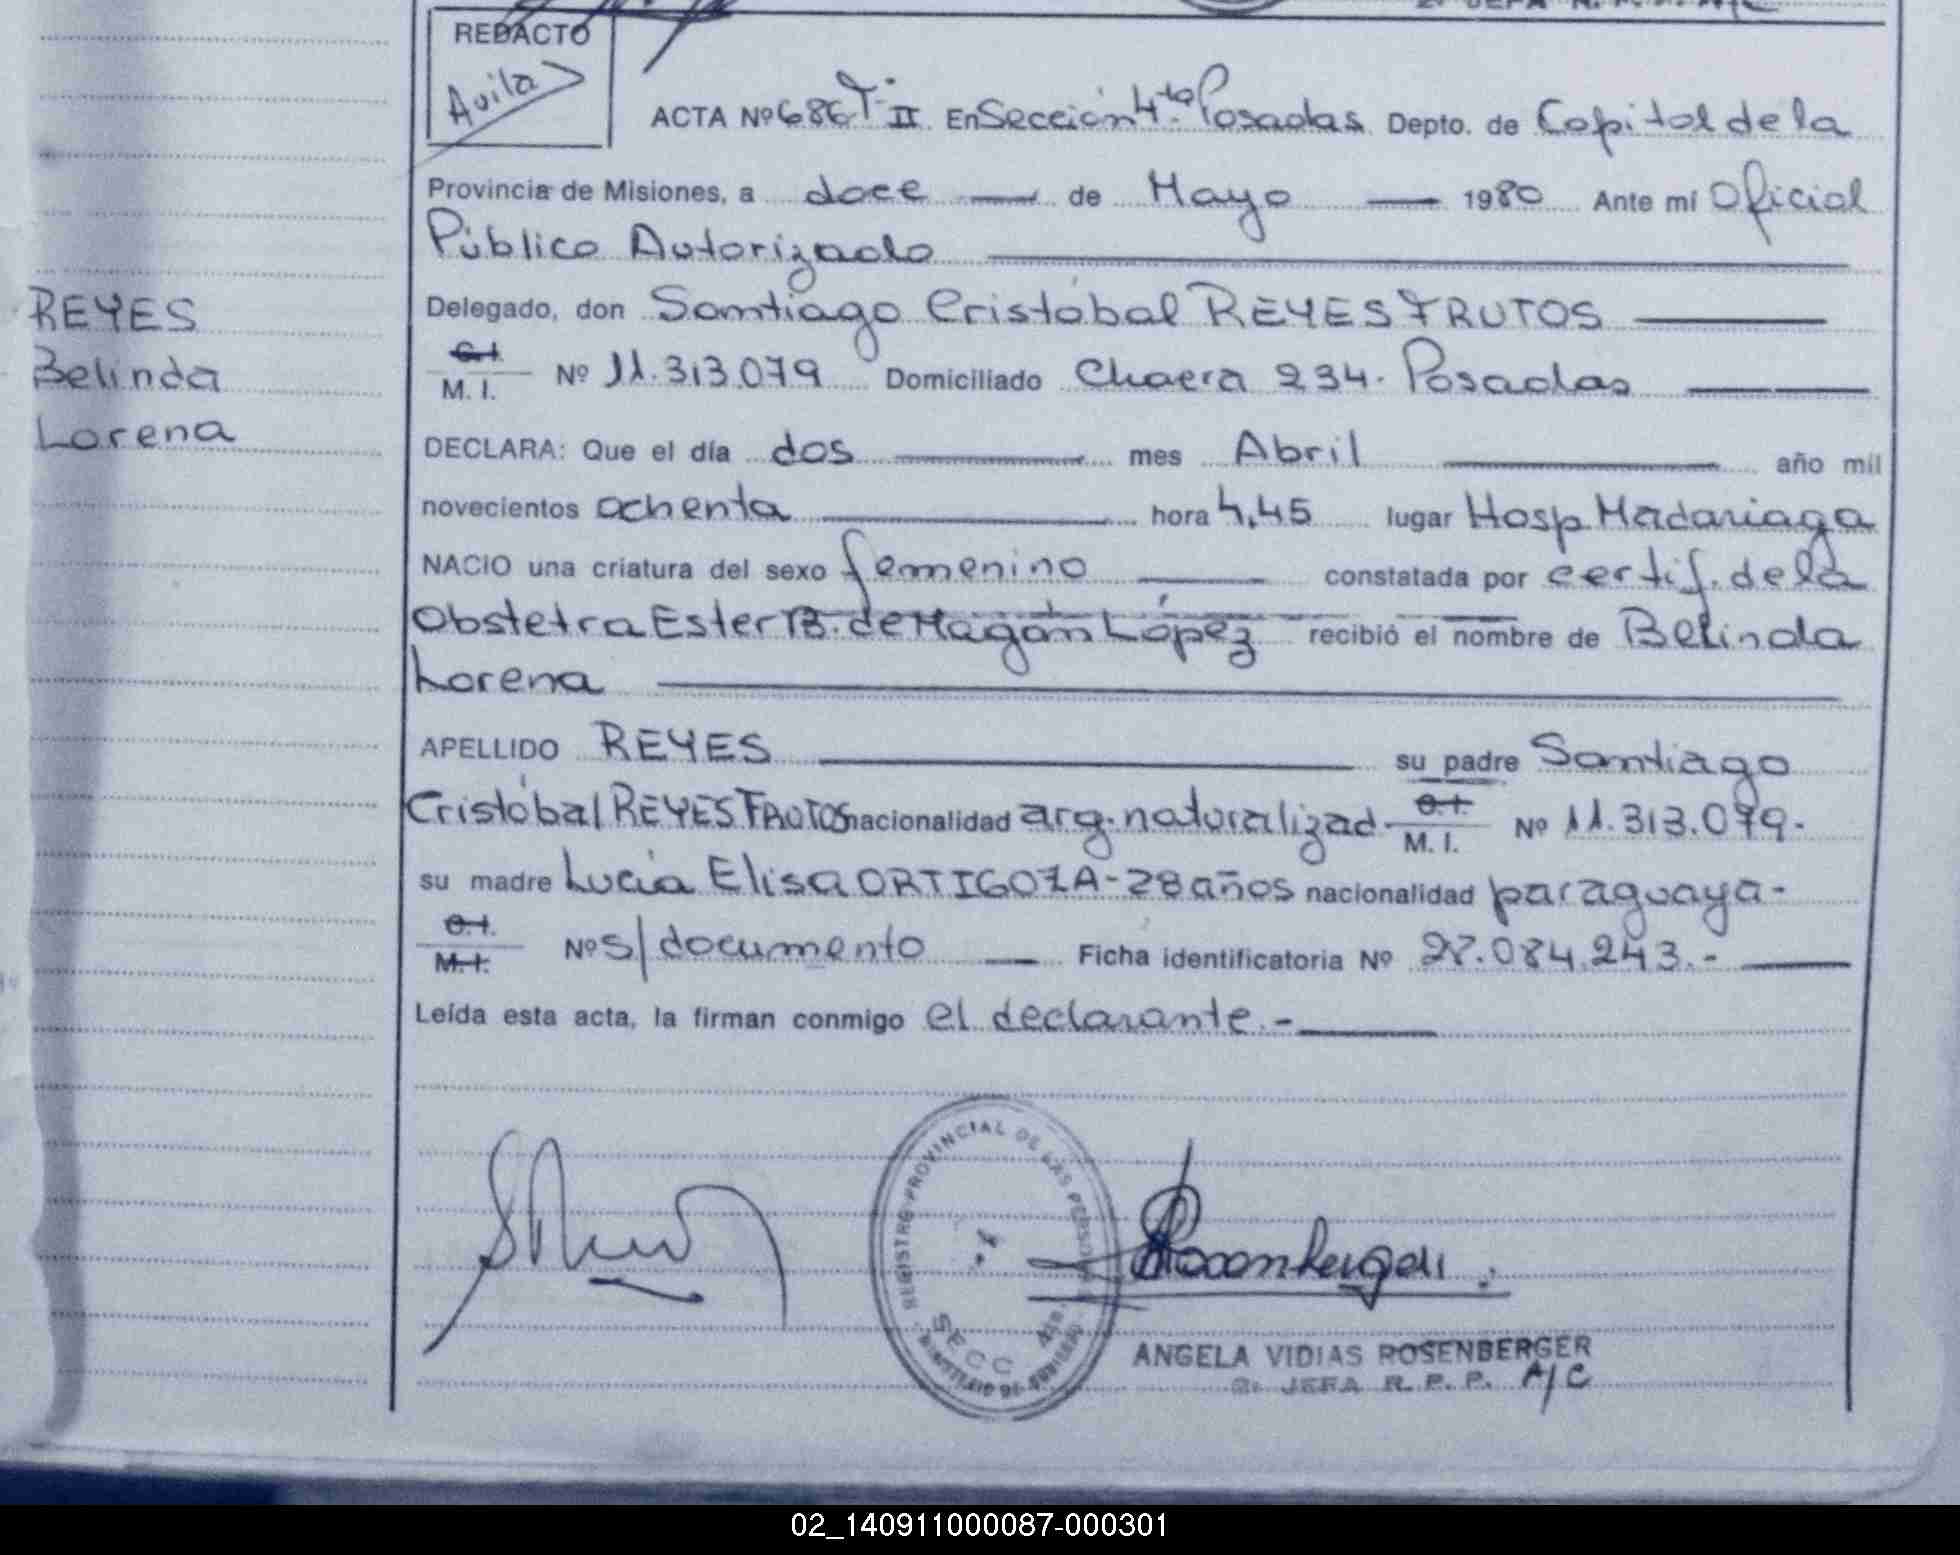 2º JEFA R. P. P. A/C
REDACTO
Avila
ACTA Nº 686 T- II En Sección 4ta. Posadas Depto. de Capital de la
Provincia de Misiones, a doce de Mayo 1980 Ante mí Oficial
Público Autorizado
Delegado, don Santiago Cristóbal REYES FRUTOS
C.I. M. I. Nº 11.313.079 Domiciliado Chacra 234. Posadas
REYES
Belinda
Lorena
DECLARA: Que el día dos mes Abril año mil
novecientos ochenta hora 4,45 lugar Hosp Madariaga
NACIO una criatura del sexo femenino constatada por certif. de la
Obstetra Ester B. de Magán López recibió el nombre de Belinda
Lorena
APELLIDO REYES su padre Santiago
Cristóbal REYES FRUTOS nacionalidad arg. naturalizad. C.I. M. I. Nº 11.313.079.
su madre Lucía Elisa ORTIGOZA-28 años nacionalidad paraguaya-
C.I. M.I. Nº S/documento Ficha identificatoria Nº 28.084.243.-
Leída esta acta, la firman conmigo el declarante.-
REGISTRO PROVINCIAL DE LAS PERSONAS
SECC
ANGELA VIDIAS ROSENBERGER
2º JEFA R. P. P. A/C
02_140911000087-000301